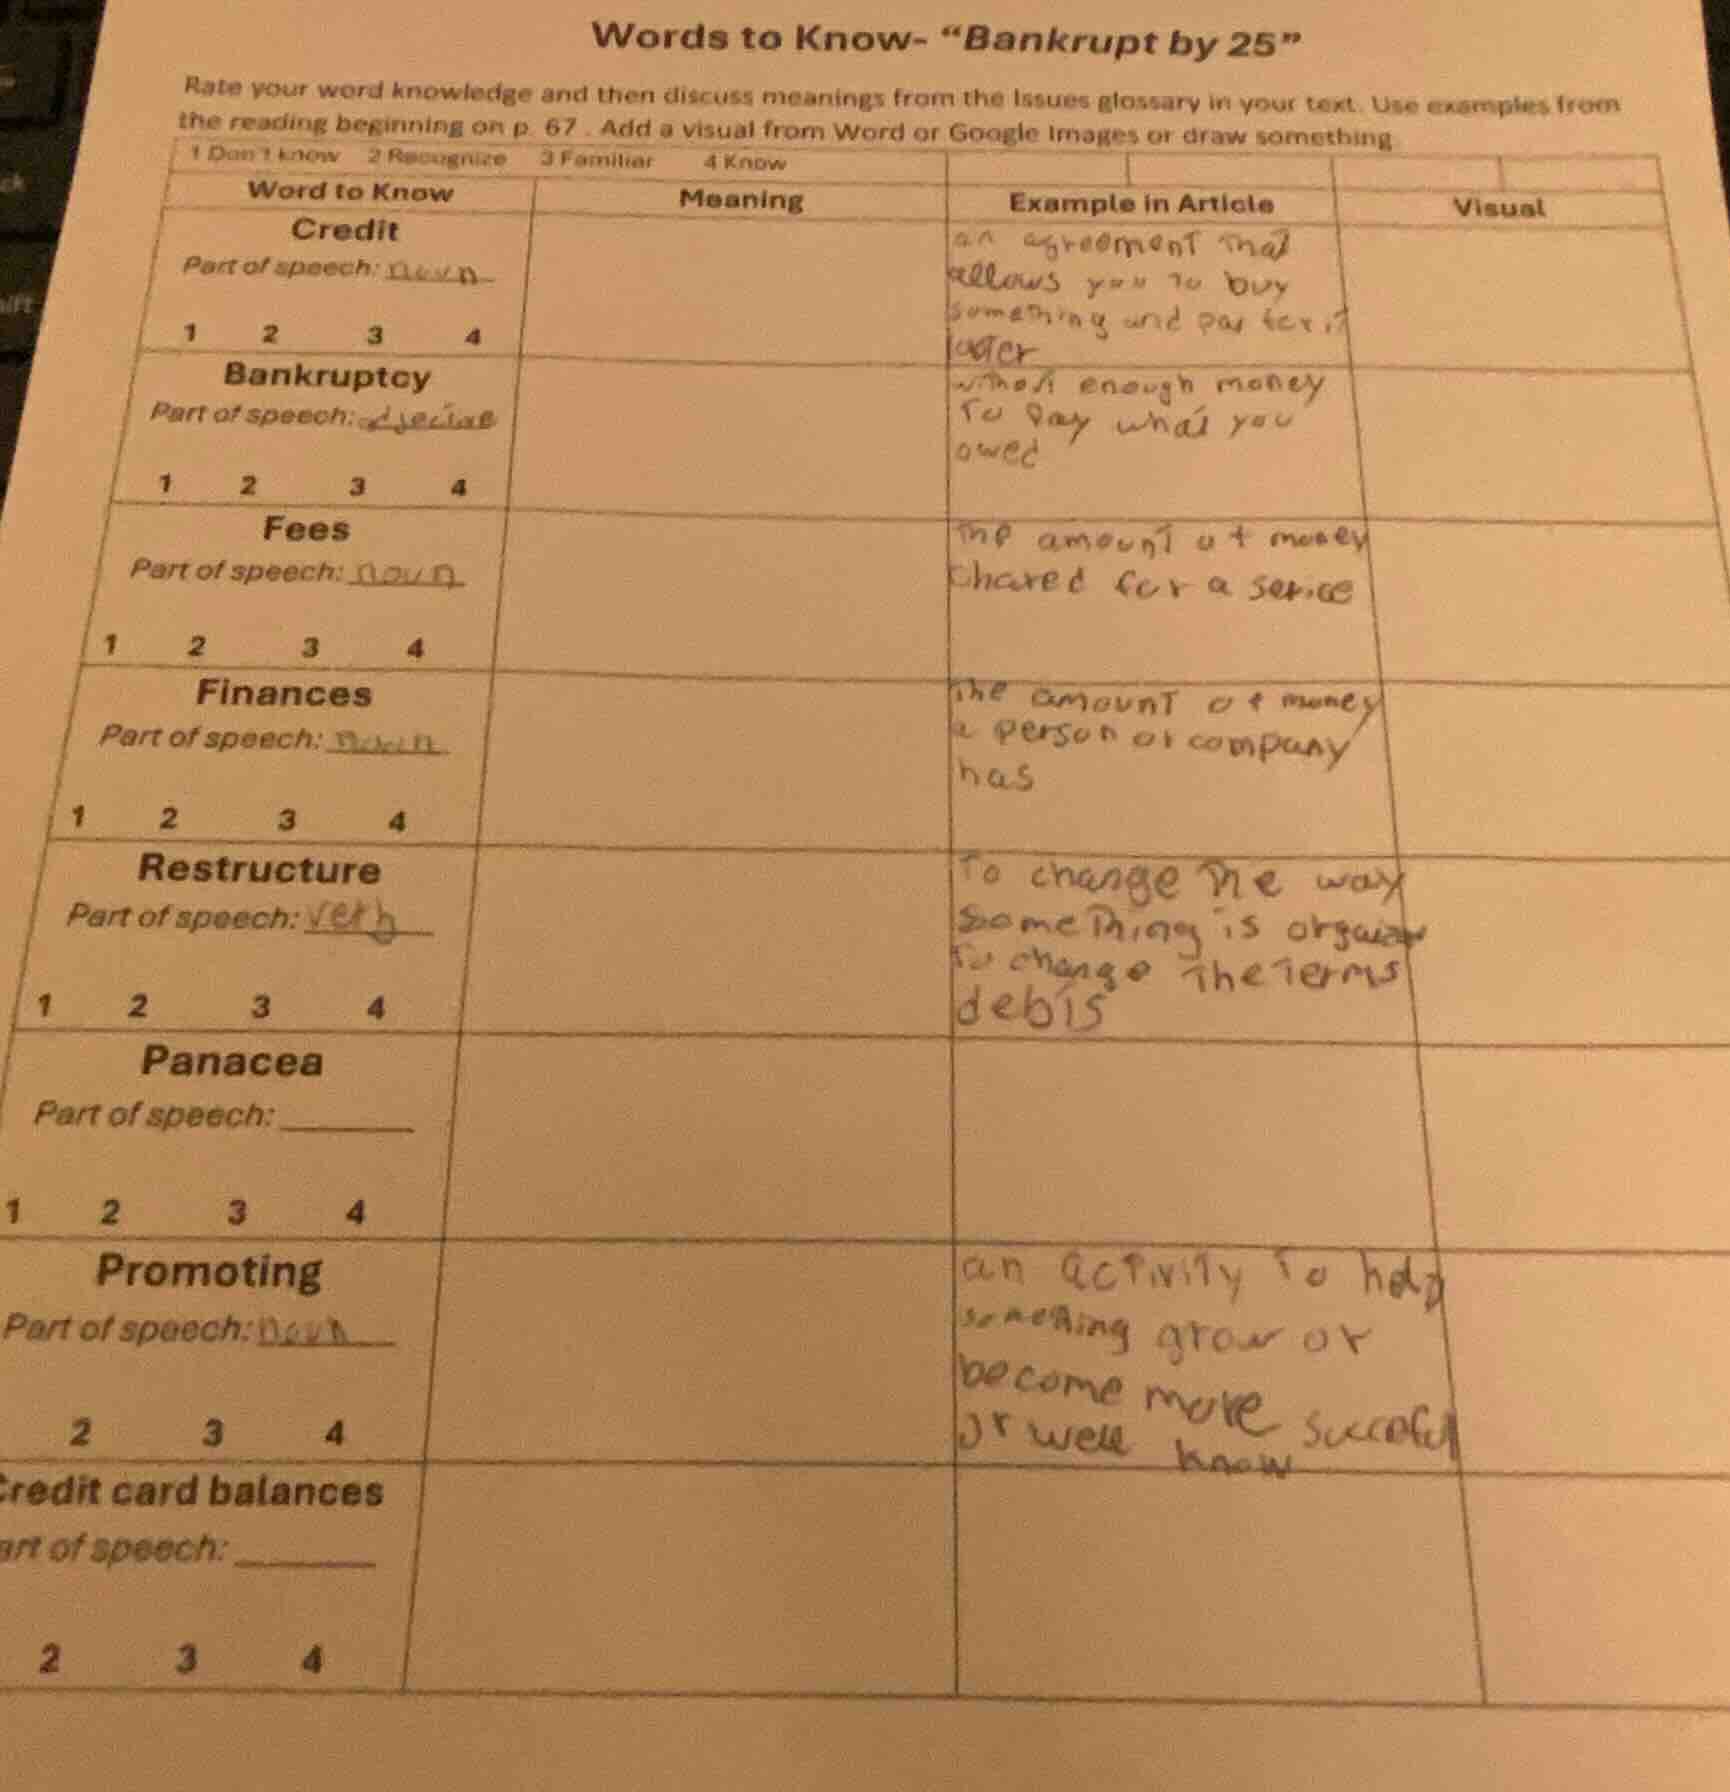 Words to Know- “Bankrupt by 25”
Rate your word knowledge and then discuss meanings from the Issues glossary in your text. Use examples from
the reading beginning on p. 67 . Add a visual from Word or Google Images or draw something
1 Don't know 2 Recognize 3 Familiar 4 Know
Word to Know Meaning Example in Article Visual
Credit
Part of speech: noun
1 2 3 4
an agreement that
allows you to buy
something and pay for it
later
Bankruptcy
Part of speech: adjecive
1 2 3 4
without enough money
To pay what you
owed
Fees
Part of speech: noun
1 2 3 4
The amount of money
chared for a serice
Finances
Part of speech: noun
1 2 3 4
The amount of money
a person or company
has
Restructure
Part of speech: verb
1 2 3 4
To change The way
someThing is
To change The Terms
debts
Panacea
Part of speech:
1 2 3 4
Promoting
Part of speech: noun
2 3 4
an acTiviTy To help
something grow or
become more
or well know
Credit card balances
art of speech:
2 3 4